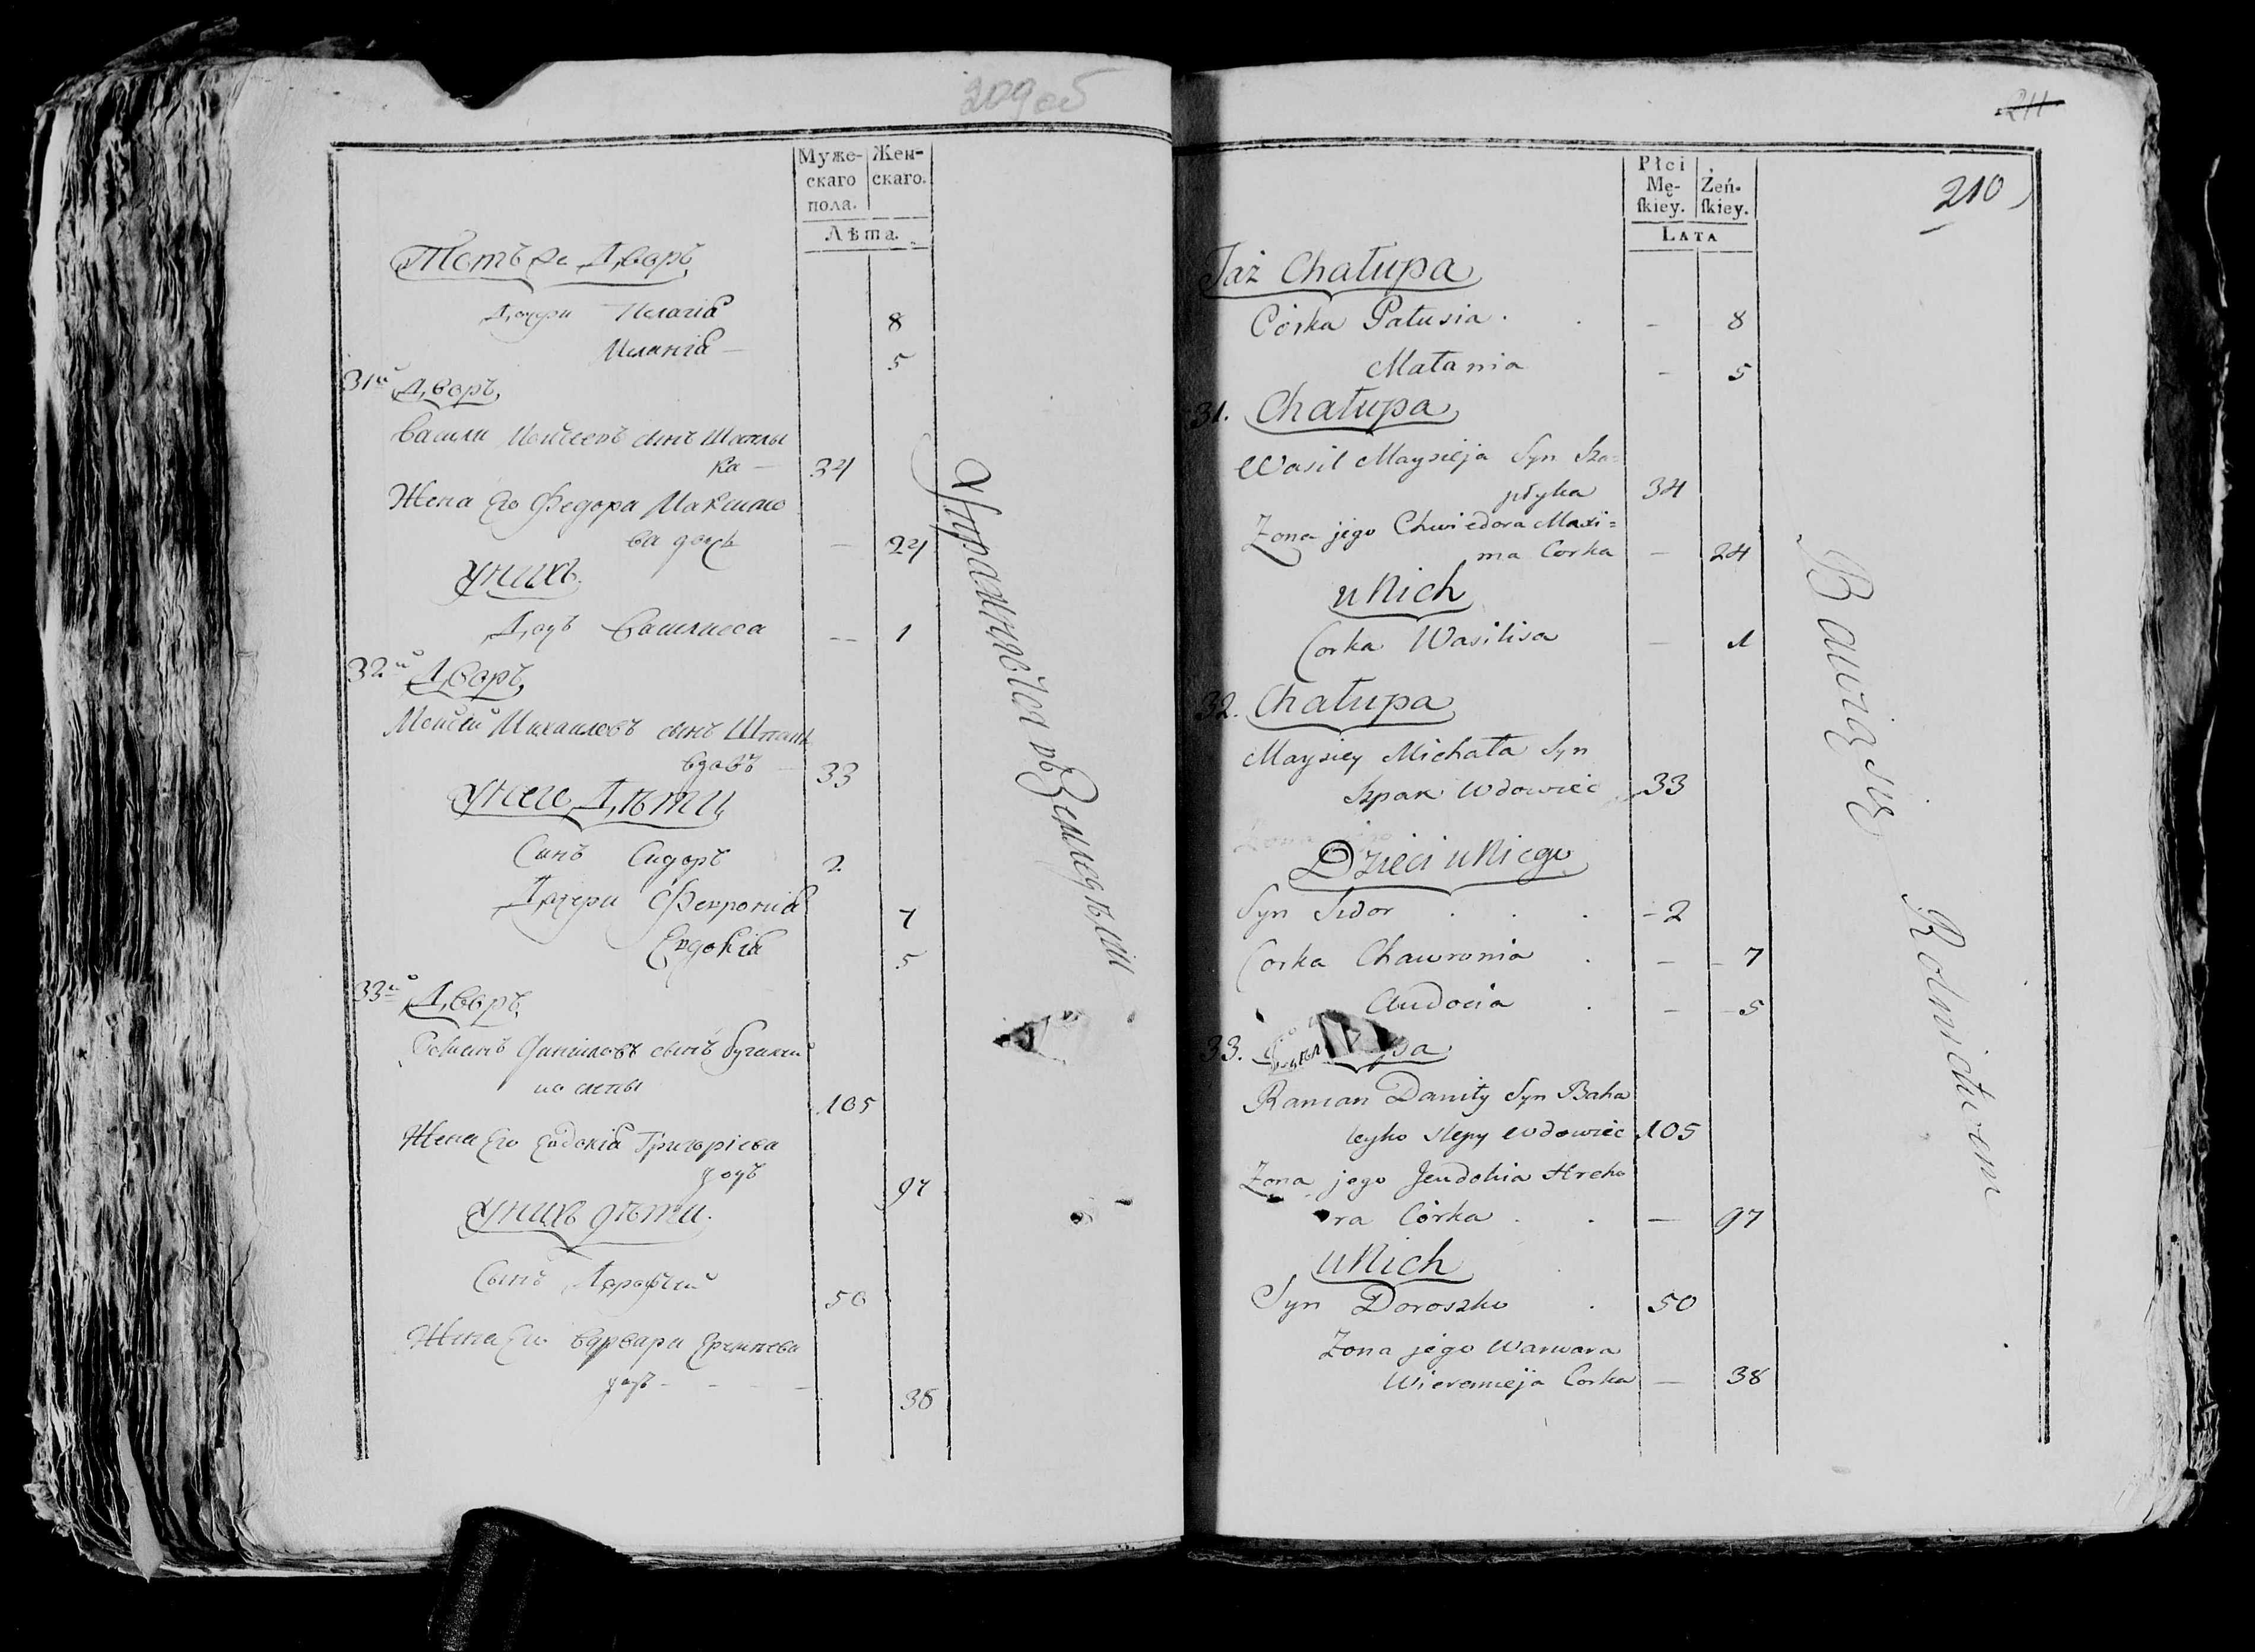 209 об
Муже-
скаго
пола.
Жен-
скаго.
Лѣта.
Тотъ же Дворъ
Дочери Пелагіа 8
Меланіа — 5
31й Дворъ
Васили Моисеевъ сынъ Шаплы
ка — 34
Жена Его Федора Максимо
ва дочь — 24
У нихъ
Дочь Василиса — 1
32й Дворъ
Моисей Михаиловъ сынъ Шпакъ
вдовъ — 33
У него Дѣти
Синъ Сидоръ 2
Дочери Февроніа 7
Евдокіа 5
33й Дворъ
Романъ Даниловъ сынъ
105
Жена Его Евдокіа Григоріева
дочь 97
У нихъ дѣти
Сынъ Дорофей 50
Жена Его Варвара
дочь — 38
Упражняются въ Земледѣліи
211
210
Płci
Mę-
skiey.
Żeń-
skiey.
LATA
Taż Chałupa
Córka Pałusia . . — 8
Małania — 5
31. Chałupa
Wasil Maysieja Syn Sza=
płyka 34
Zona jego Chwiedora Maxi=
ma Corka — 24
u Nich
Corka Wasilisa — 1
32. Chałupa
Maysiey Michała Syn
Szpak Wdowiec 33
Dzieci u Niego
Syn Sidor . . . — 2
Corka Chawronia . — 7
Audocia . — 5
33.
Raman Daniły Syn Baha
leyko slepy Wdowiec 105
Zona jego Jeudokia Hreho
ra Córka . . — 97
u Nich
Syn Doroszko . 50
Zona jego Warwara
Wieremieja Corka — 38
Bawią się Rolnictwem